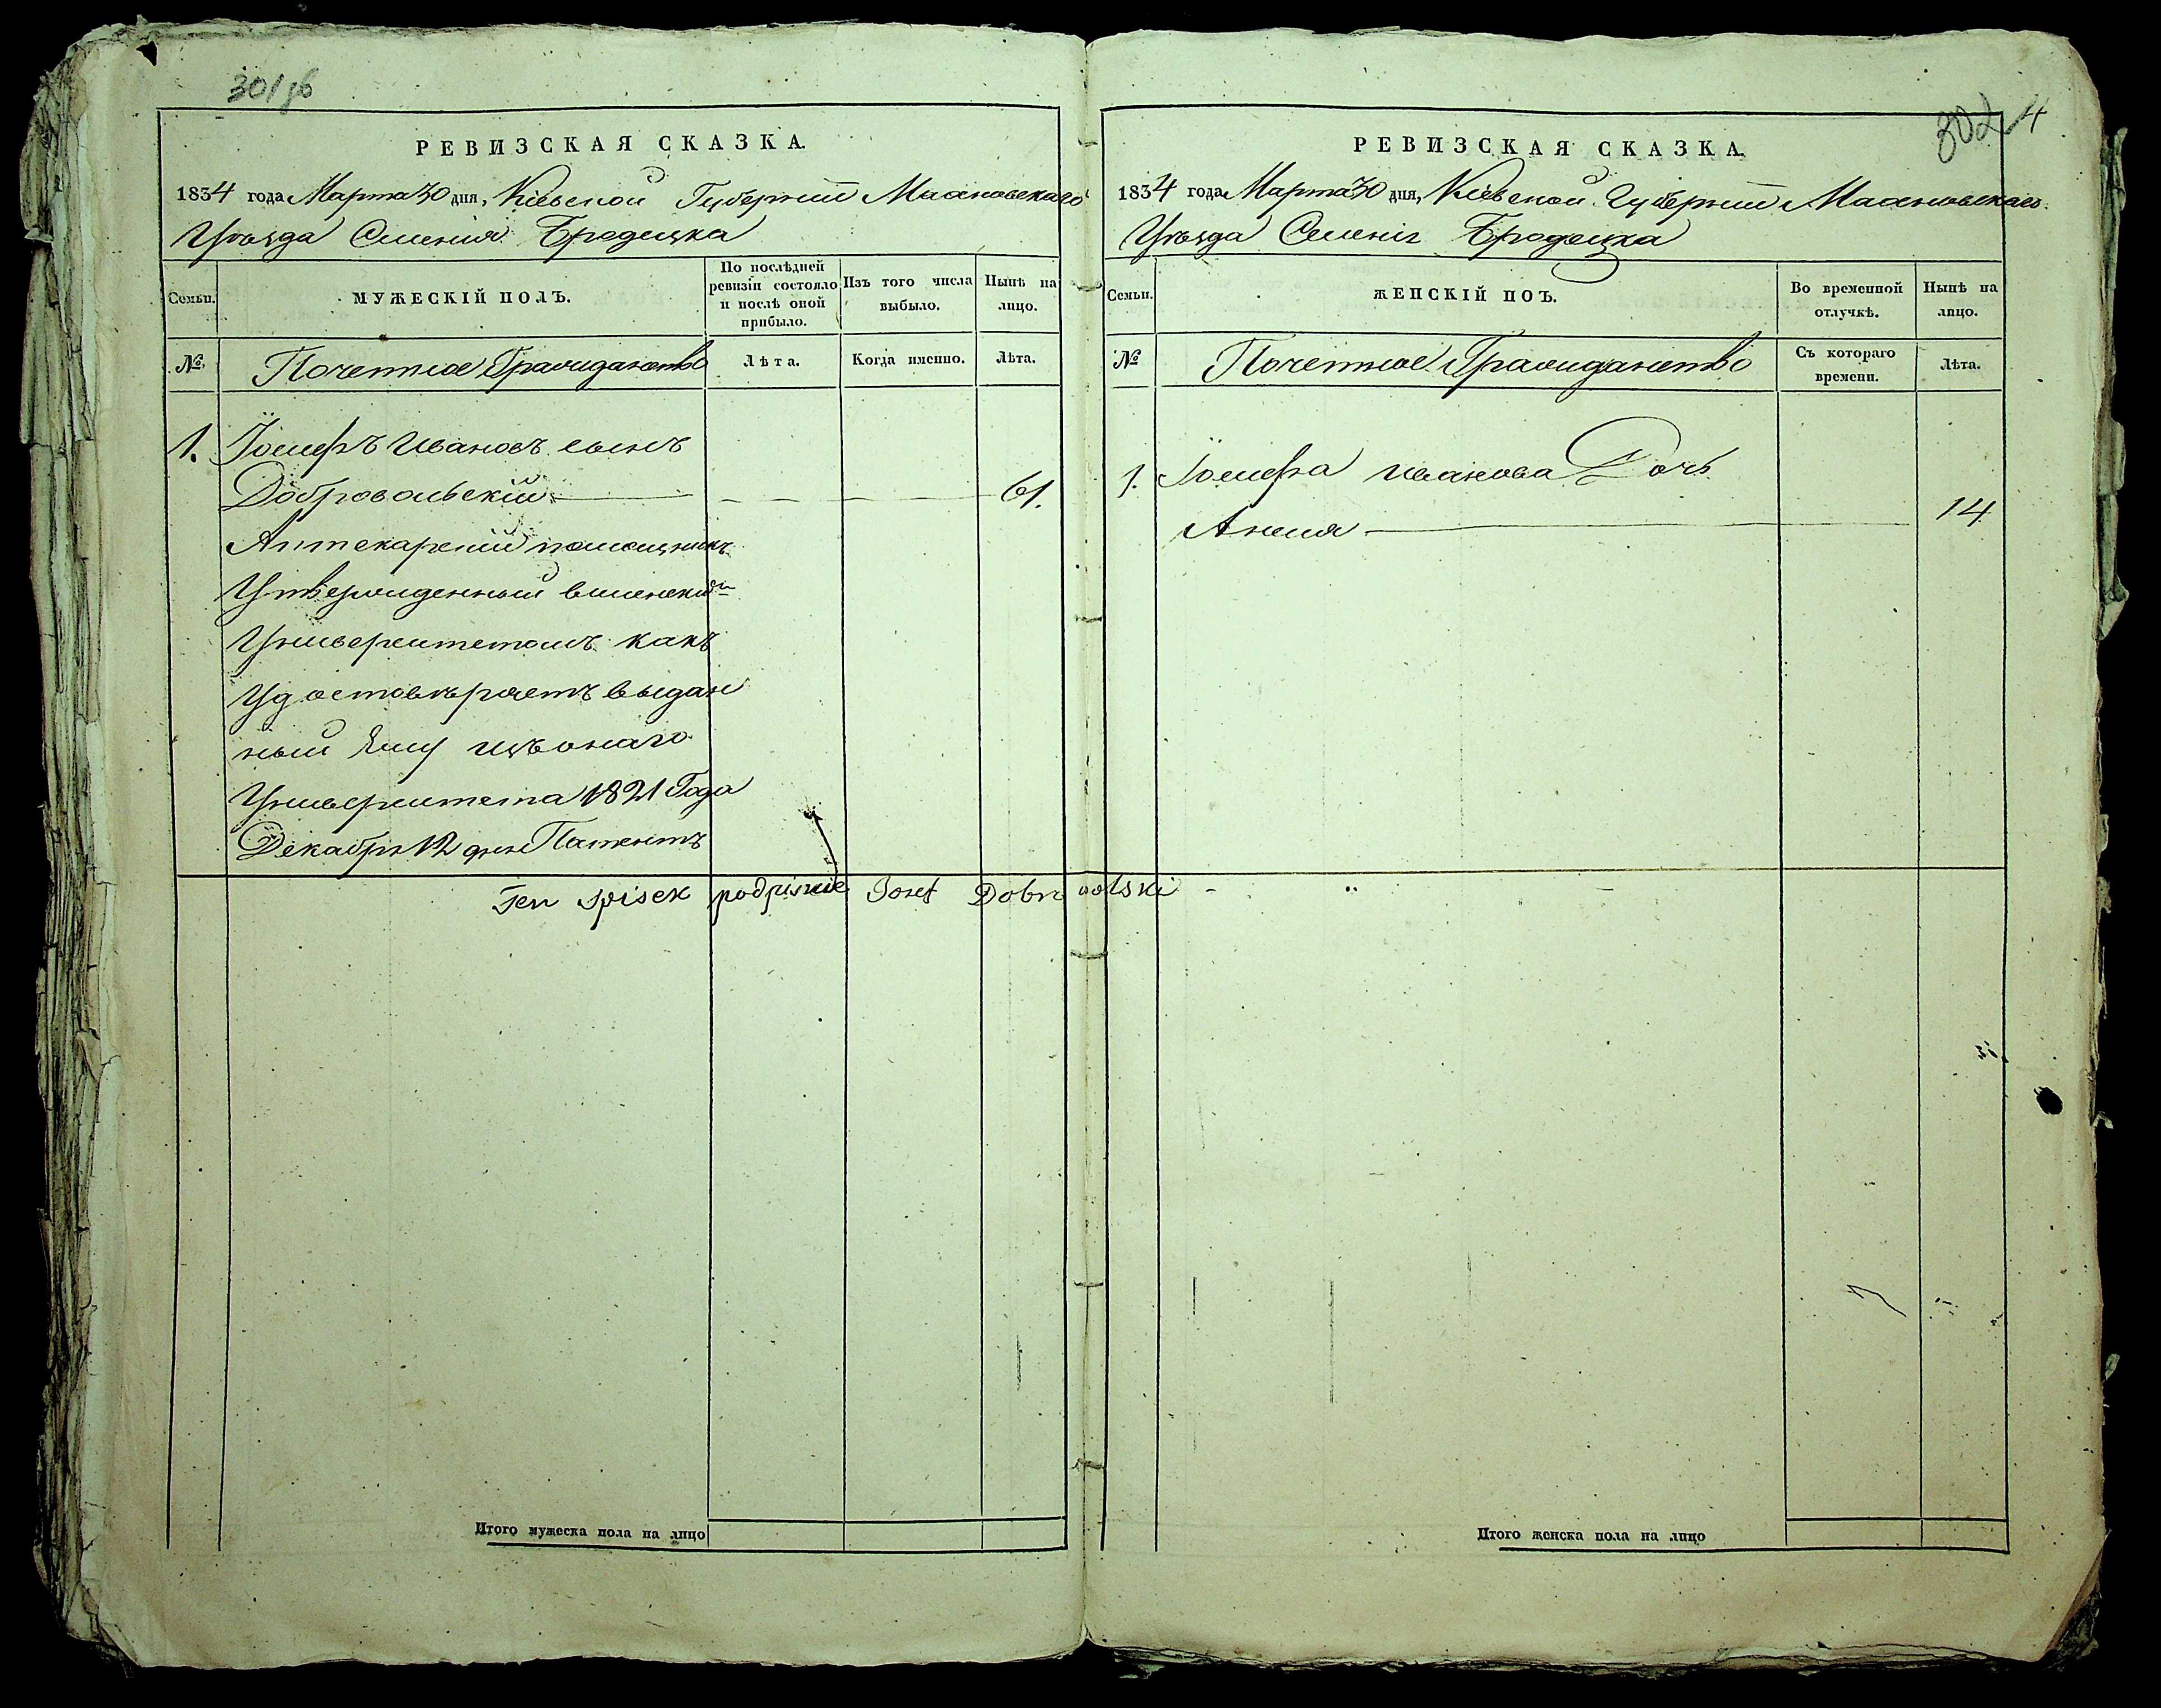 301 об
РЕВИЗСКАЯ СКАЗКА.
1834 года Марта 30 дня, Кіевской Губерніи Махновскаго
Уѣзда Селенія Бродецка
Семьи. МУЖЕСКІЙ ПОЛЪ. По послѣдней ревизіи состояло и послѣ оной прибыло. Изъ того числа выбыло. Нынѣ на лицо.
№ Почетное Гражданство Лѣта. Когда именно. Лѣта.
1. Іосифъ Ивановъ сынъ
Добровольскій 61.
Аптекарскій помощникъ
Утвержденный виленскимъ
Университетомъ какъ
Удостовѣряетъ выдан
ный Ему изъ онаго
Университета 1821 Года
Декабря 12 дня Патентъ
Ten spisek podpisuie Iozef Dobrowolski
Итого мужеска пола на лицо
302 4
РЕВИЗСКАЯ СКАЗКА.
1834 года Марта 30 дня, Кіевской Губерніи Махновскаго
Уѣзда Селенія Бродецка
Семьи. ЖЕНСКІЙ ПОЪ. Во временной отлучкѣ. Нынѣ на лицо.
№ Почетное Гражданство Съ котораго времени. Лѣта.
1. Іосифа Иванова Дочь
Анеля 14
Итого женска пола на лицо